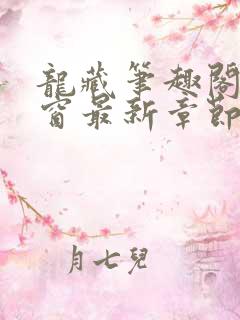 龍藏筆趣閣
窗最新章節
月七兒